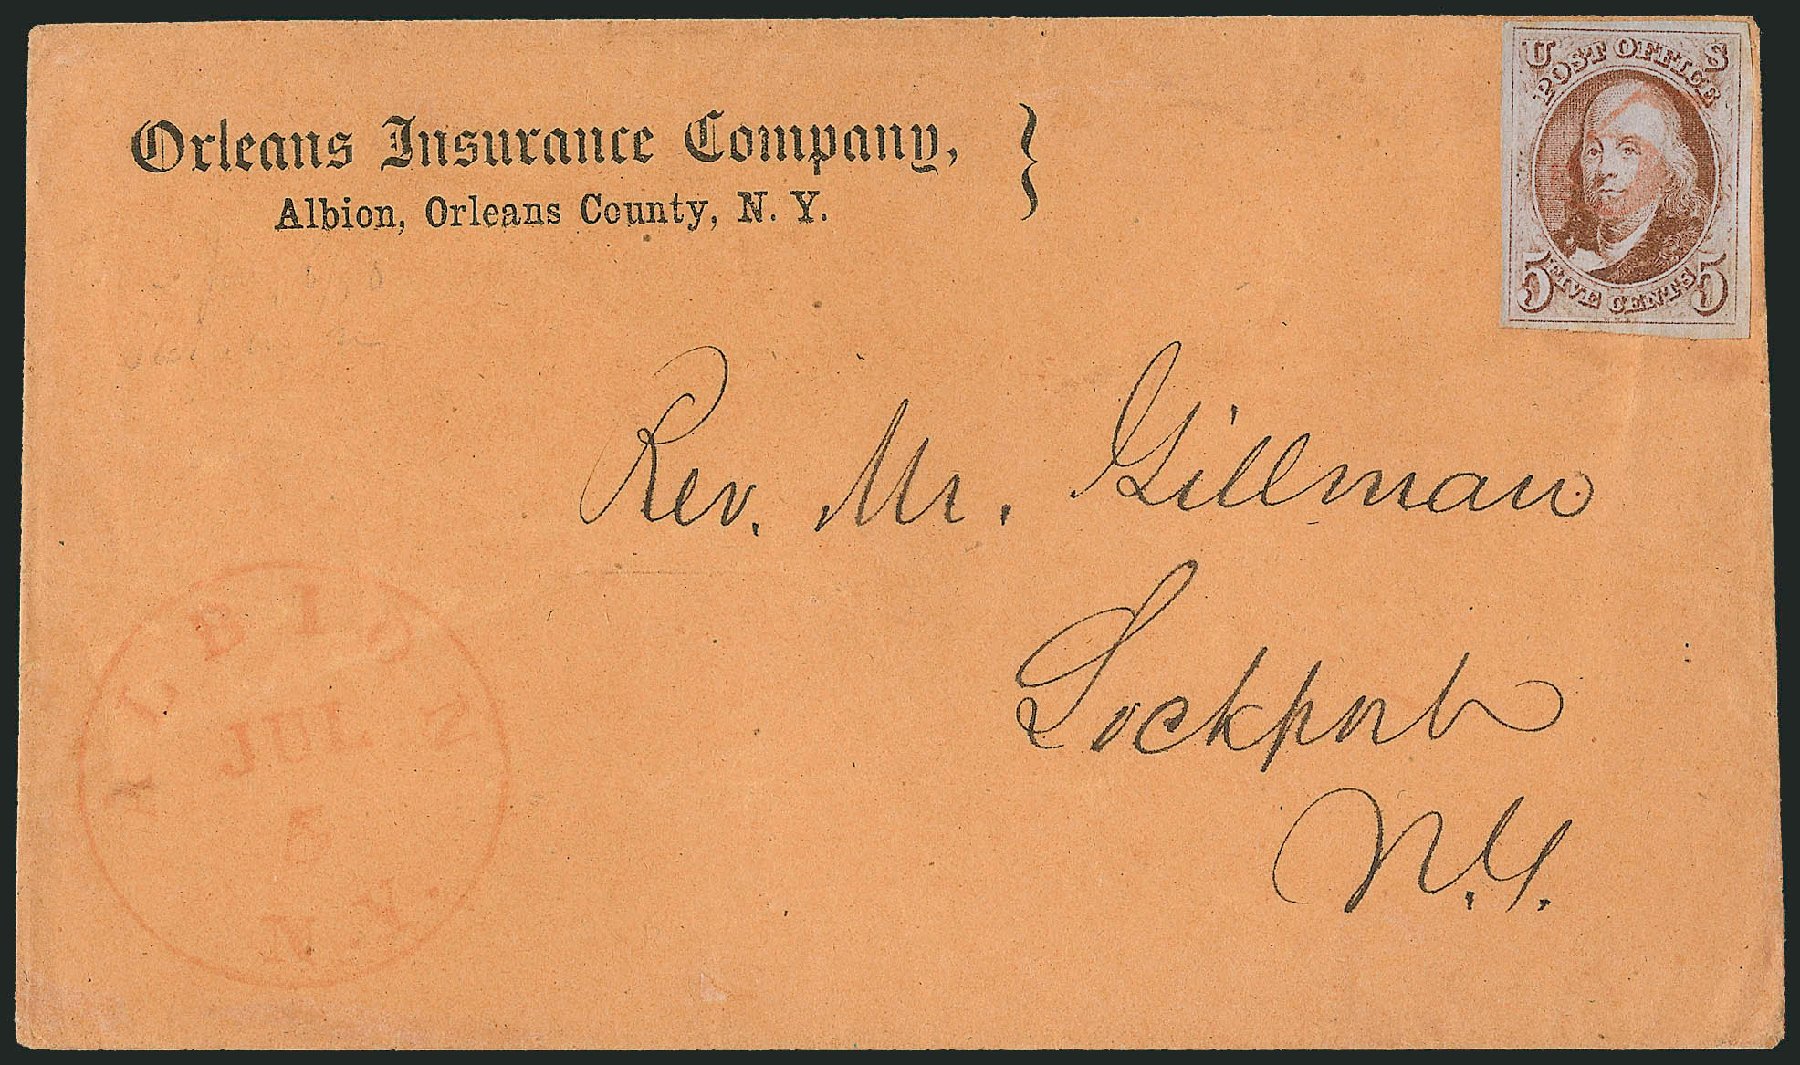 Orleans Insurance Company,
Albion, Orleans County, N. Y.
U S
POST OFFICE
5 FIVE CENTS 5
Rev. Mr. Gillman
Lockport
N.Y.
ALBION
JUL
5
N.Y.